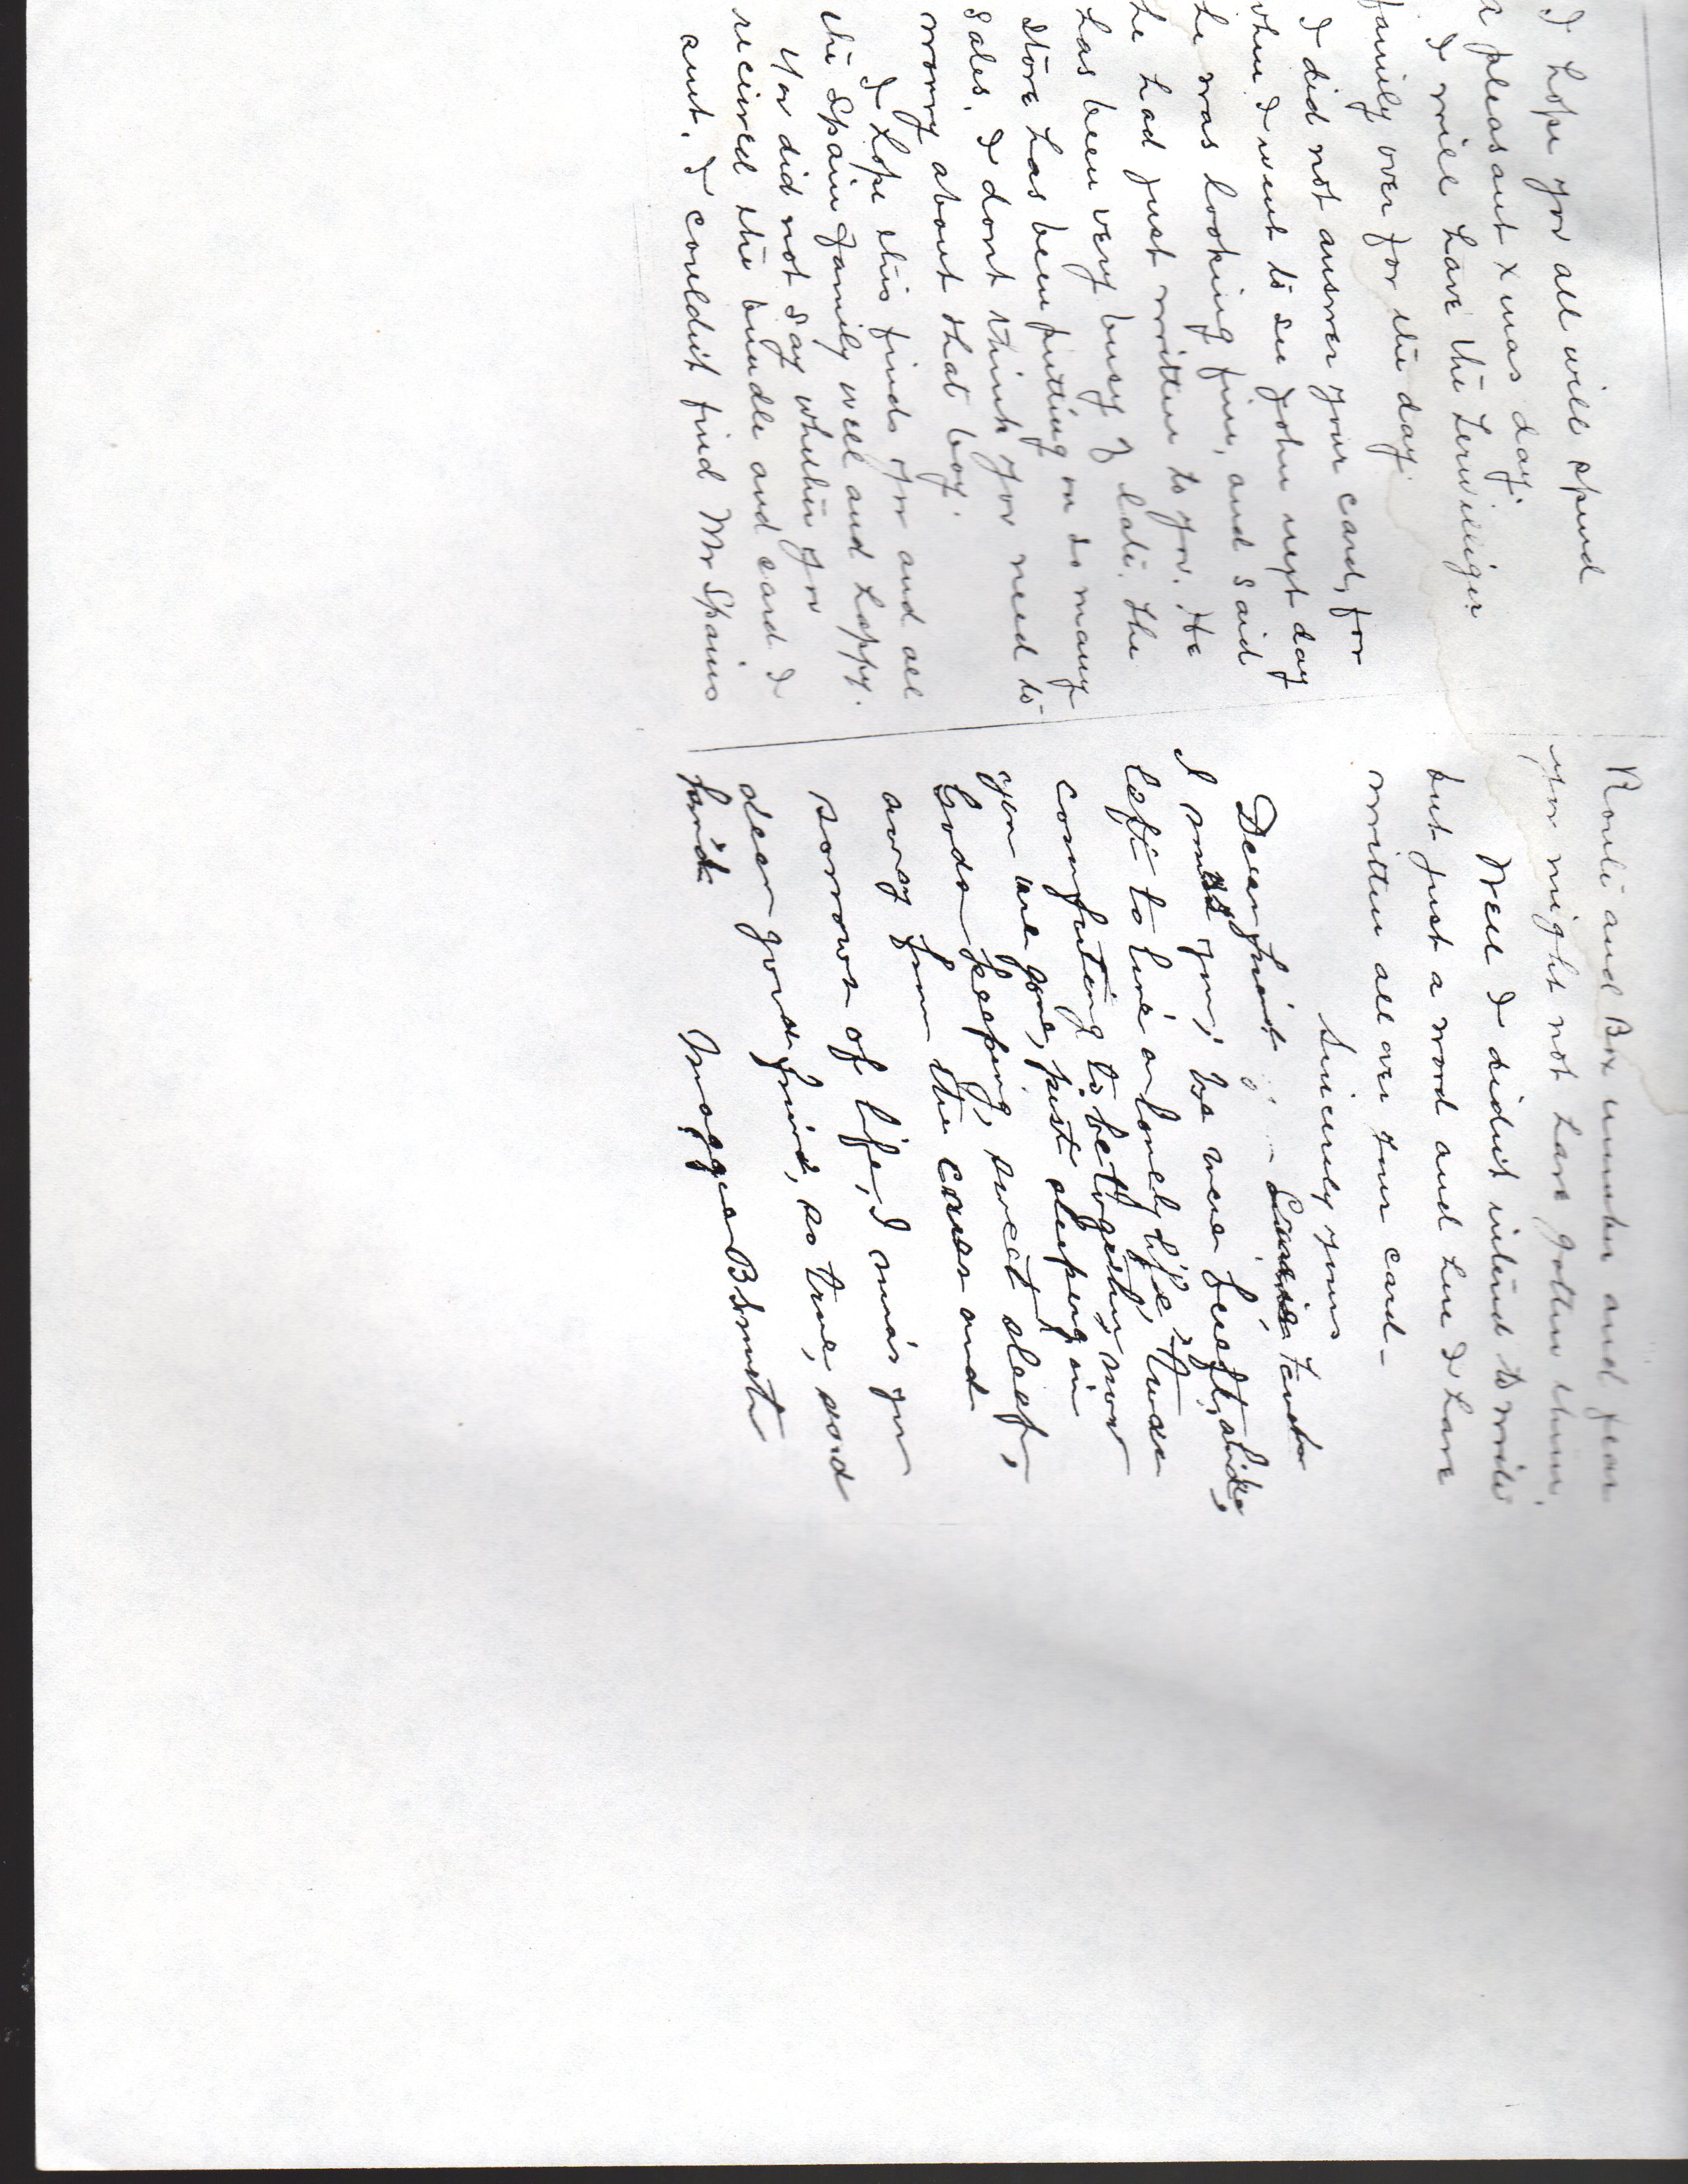 I hope you all will spend
a pleasant Xmas day.
I will have the Terwilliger
family over for the day.
I did not answer your card, for
when I went to see John next day
he was looking fine, and said
he had just written to you. He
has been very busy of late. The
store has been putting on so many
sales. I dont think you need to
worry about that boy.
I hope this finds you and all
the Spain family well and happy.
You did not say whether you
received the bundle and card. I
aunt. I couldn't find Mr Spains
Route and Box number and fear
you might not have gotten them.
Well I didn't intend to write
but just a word and here I have
written all over your card -
Sincerely yours
Dear friend
I miss you, we were left alike,
left to live a lonely life, twas
comforting to be together, now
you are gone, just sleeping in
Gods keeping, sweet sleep,
away from the cares and
sorrows of life, I miss you
dear good friend, so true, and
kind.